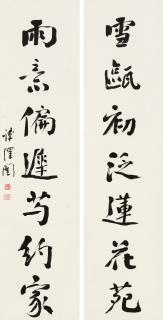 雪甌初泛蓮花苑
雨意偏遲芍約家
譚澤闓